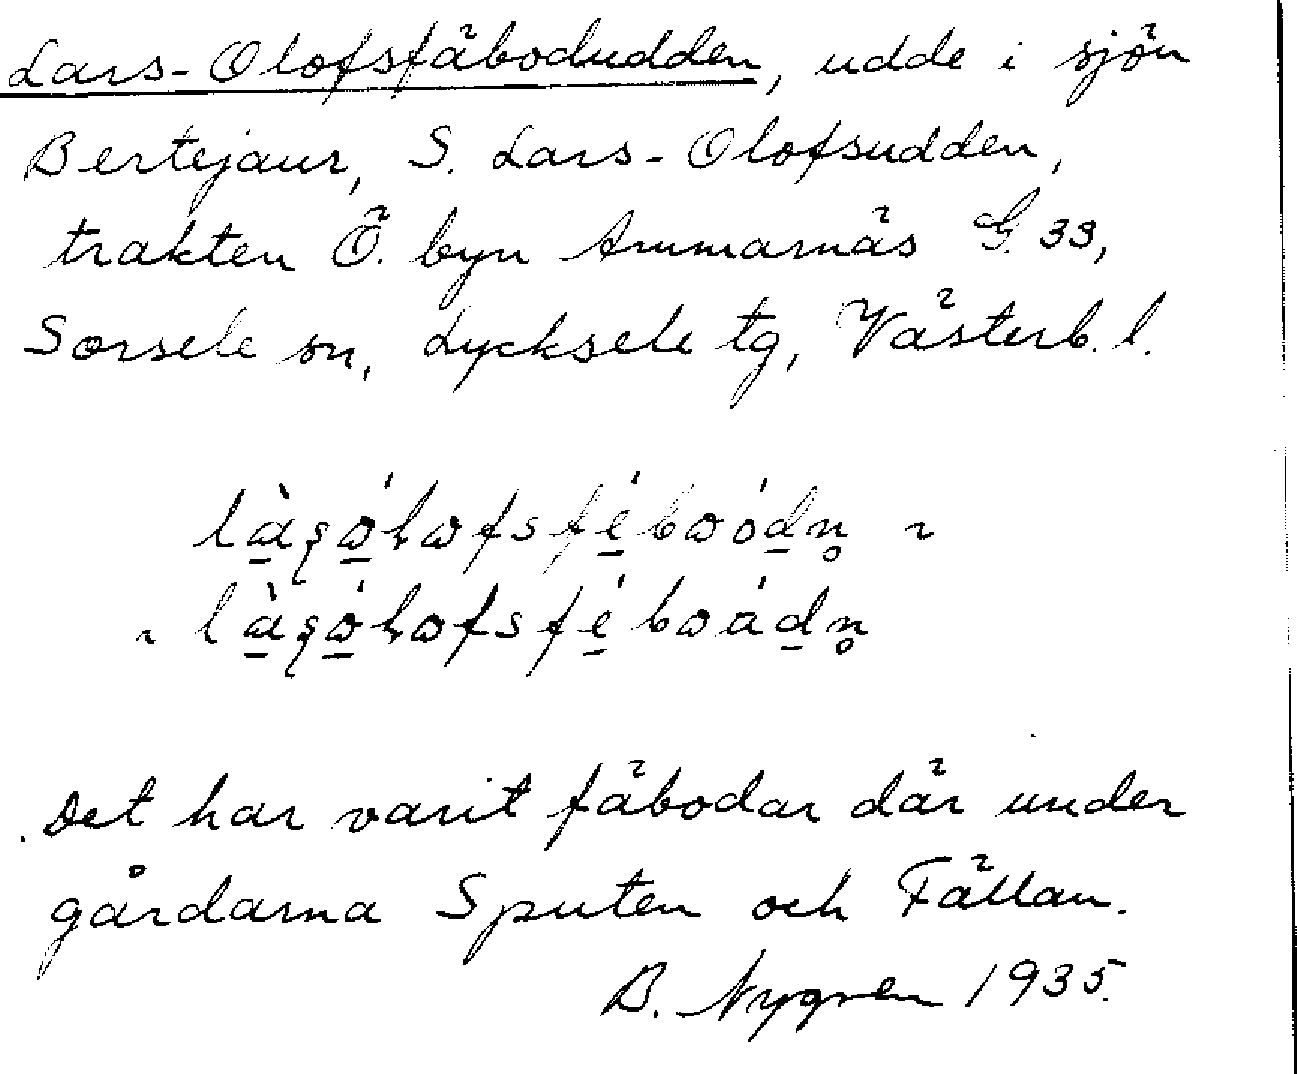 Lars-Olofsfäbodudden, udde i sjön
Bertejaur, S. Lars-Olofsudden,
trakten Ö. byn Ammarnäs G. 33,
Sorsele sn, Lycksele tg, Västerb. l.
Det har varit fäbodar där under
gårdarna Sputen och Fällan.
B. Nygren 1935.